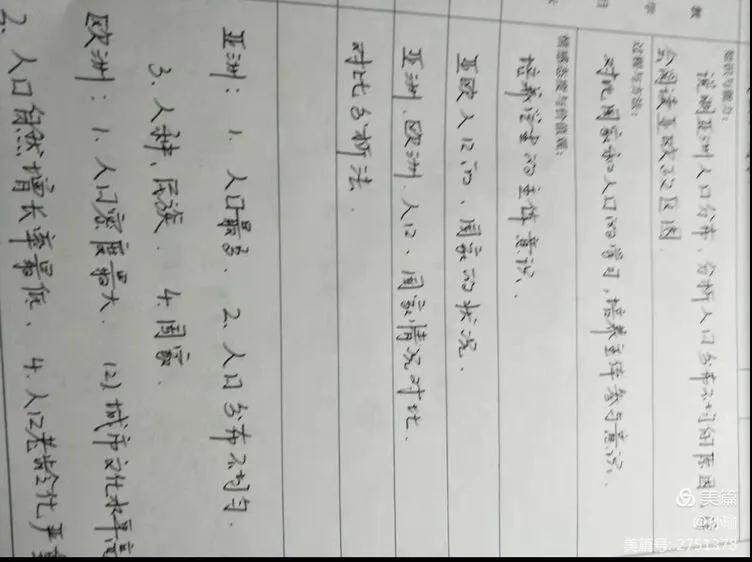 教
学
目
知识与能力:
说明亚洲人口分布,分析人口分布不均的原因,
会阅读亚欧政区图
过程与方法:
对比国家和人口的学习,培养主体参与意识、
情感态度与价值观:
培养学生的主体意识、
亚欧人口的、国家的状况.
亚洲、欧洲、人口、国家情况对比.
对比分析法.
亚洲: 1. 人口最多. 2. 人口分布不均匀.
3. 人种、民族. 4. 国家.
欧洲: 1. 人口密度最大. (2) 城市文化水平高
2. 人口自然增长率最低、 4. 人口老龄化严重
美篇
美篇号: 2751378